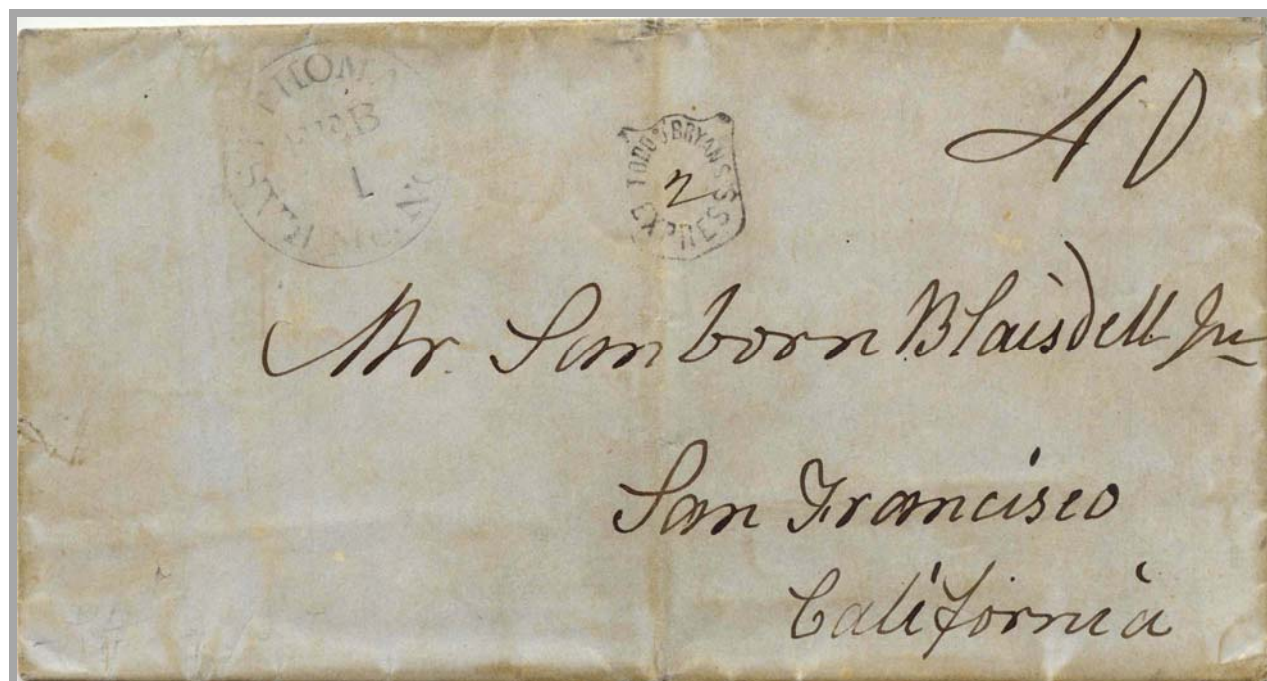 EAST THOMASTON
FEB
1
ME
TODD & BRYAN'S
2
EXPRESS
40
Mr. Sanborn Blaisdell Jr
San Francisco
California